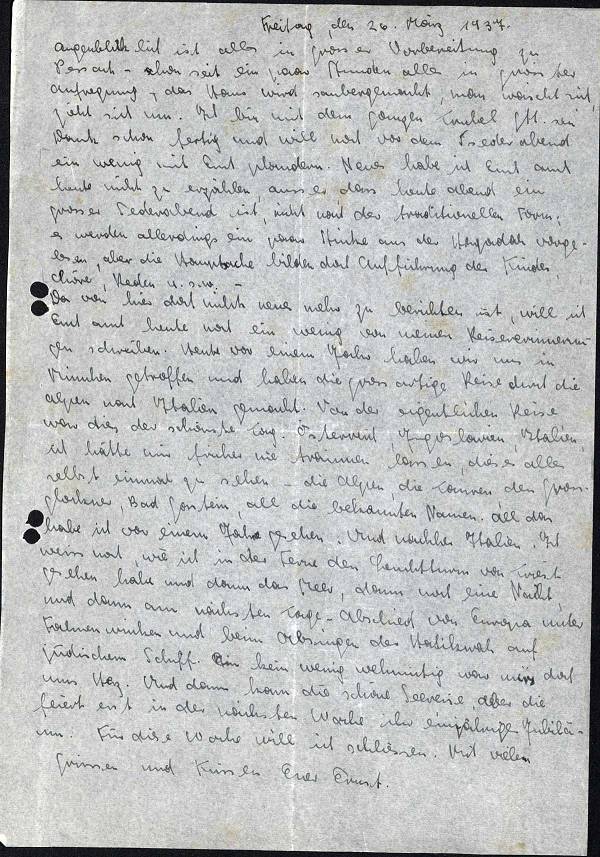 Freitag, den 26. März 1937.
Augenblicklich ist alles in grosser Vorbereitung zu
Pessach - schon seit ein paar Stunden alles in grösster
Aufregung, das Haus wird saubergemacht, man wäscht sich,
zieht sich um. Ich bin mit dem ganzen Trubel Gtt. sei
Dank schon fertig und will noch vor dem Sederabend
ein wenig mit Euch plaudern. Neues habe ich Euch auch
heute nicht zu erzählen, ausser dass heute abend ein
grosser Sederabend ist, nicht nach der traditionellen Form;
es werden allerdings ein paar Stücke aus der Hagadah vorge-
lesen, aber die Hauptsache bilden doch Aufführung der Kinder,
Chöre, Reden u.s.w. -
Da von hier doch nichts neues mehr zu berichten ist, will ich
Euch auch heute noch ein wenig von meinen Reiseerinnerun-
gen schreiben. Heute vor einem Jahr haben wir uns in
München getroffen und haben die grossartige Reise durch die
Alpen nach Italien gemacht. Von der eigentlichen Reise
war dies der schönste Tag. Österreich, Jugoslawien, Italien,
ich hätte mir früher nie träumen lassen, dieses alles
selbst einmal zu sehen - die Alpen, die Tauern, den Gross-
glockner, Bad Gastein, all die bekannten Namen. All das
habe ich vor einem Jahr gesehen. Und nachher Italien. Ich
weiss noch, wie ich in der Ferne den Leuchtturm von Triest
gesehen habe und dann das Meer, dann noch eine Nacht
und dann am nächsten Tage - Abschied von Europa unter
Fahnenwinken und beim Absingen der Hatikwah auf
jüdischem Schiff. Ein klein wenig wehmütig war mir doch
ums Herz. Und dann kam die schöne Seereise, aber die
feiert erst in der nächsten Woche ihr einjähriges Jubilä-
um. Für diese Woche will ich schliessen. Mit vielen
Grüssen und Küssen Euer Ernst.